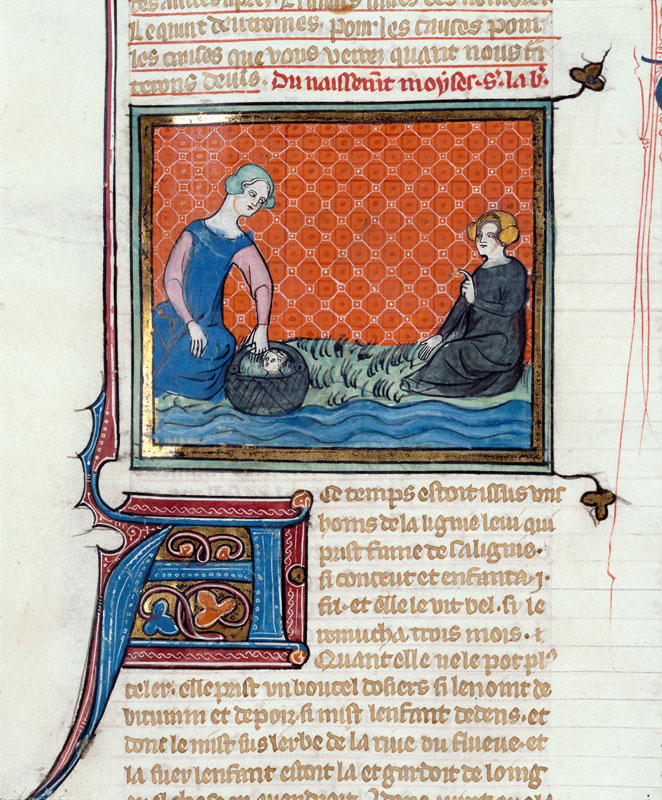 Lequint deutromes. Pour les causes pour
les causes que vous verrez quant nous tri
terons deuls. Du naissemt moyses. sr la b.
Ce temps estoit issus uns
homs de la lignie leui qui
prist fame de sa lignie.
si conceut et enfanta .j.
fil. et elle le vit bel. si le
remucha trois mois. et
Quant elle ne le pot plus
celer. elle prist vn boucel dosiers si lenoint de
vitumin et de poiz. si mist lenfant dedens. et
dont le mist sus lerbe de la riue du flueue. et
la suer lenfant estoit la et gardoit de loing